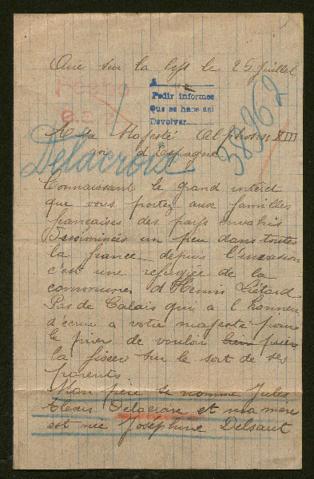 Aire sur la Lys le 25 Juillet
A
Pedir informes
Que se hace así
Devolver
38962
A sa Majesté Alphonse XIII
roi d'Espagne
Delacroix
Connaissant le grand intéret
que vous portez aux familles
françaises des pays envahis
disséminées un peu dans toutes
la france depuis l'invasion
c'est une refugiée de la
commune d'Henin Liétard
Pas de Calais qui a l'honneur
d'écrire a votre majesté pour
le prier de vouloir bien
la fixer sur le sort de ses
parents
Mon père se nomme Jules
Alexis Delacroix et ma mère
est née Joséphine Delsaut